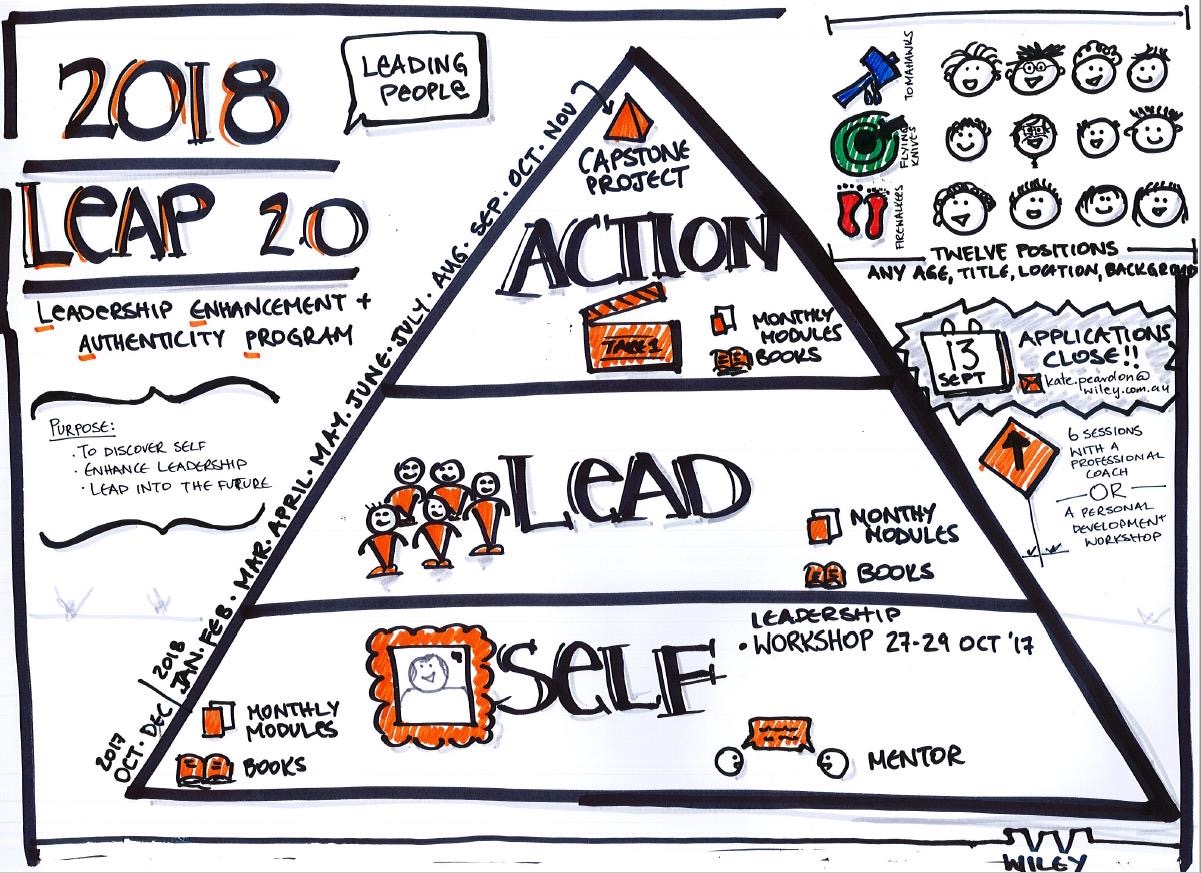 2018
LEAP 2.0
LEADERSHIP ENHANCEMENT +
AUTHENTICITY PROGRAM
PURPOSE:
· TO DISCOVER SELF
· ENHANCE LEADERSHIP
· LEAD INTO THE FUTURE
LEADING
PEOPLE
2017
OCT · DEC / 2018
JAN · FEB · MAR. APRIL · MAY. JUNE. JULY · AUG. SEP. OCT. NOV
CAPSTONE
PROJECT
ACTION
TAKE 1
MONTHLY
MODULES
BOOKS
LEAD
MONTHY
MODULES
BOOKS
SELF
LEADERSHIP
· WORKSHOP 27-29 OCT '17
MONTHLY
MODULES
BOOKS
MENTOR
TOMAHAWKS
FLYING
KNIVES
FIREWALKERS
TWELVE POSITIONS
ANY AGE, TITLE, LOCATION, BACKGROUND
13
SEPT
APPLICATIONS
CLOSE!!
kate.peardon@
wiley.com.au
6 SESSIONS
WITH A
PROFESSIONAL
COACH
OR
A PERSONAL
DEVELOPMENT
WORKSHOP
WILEY